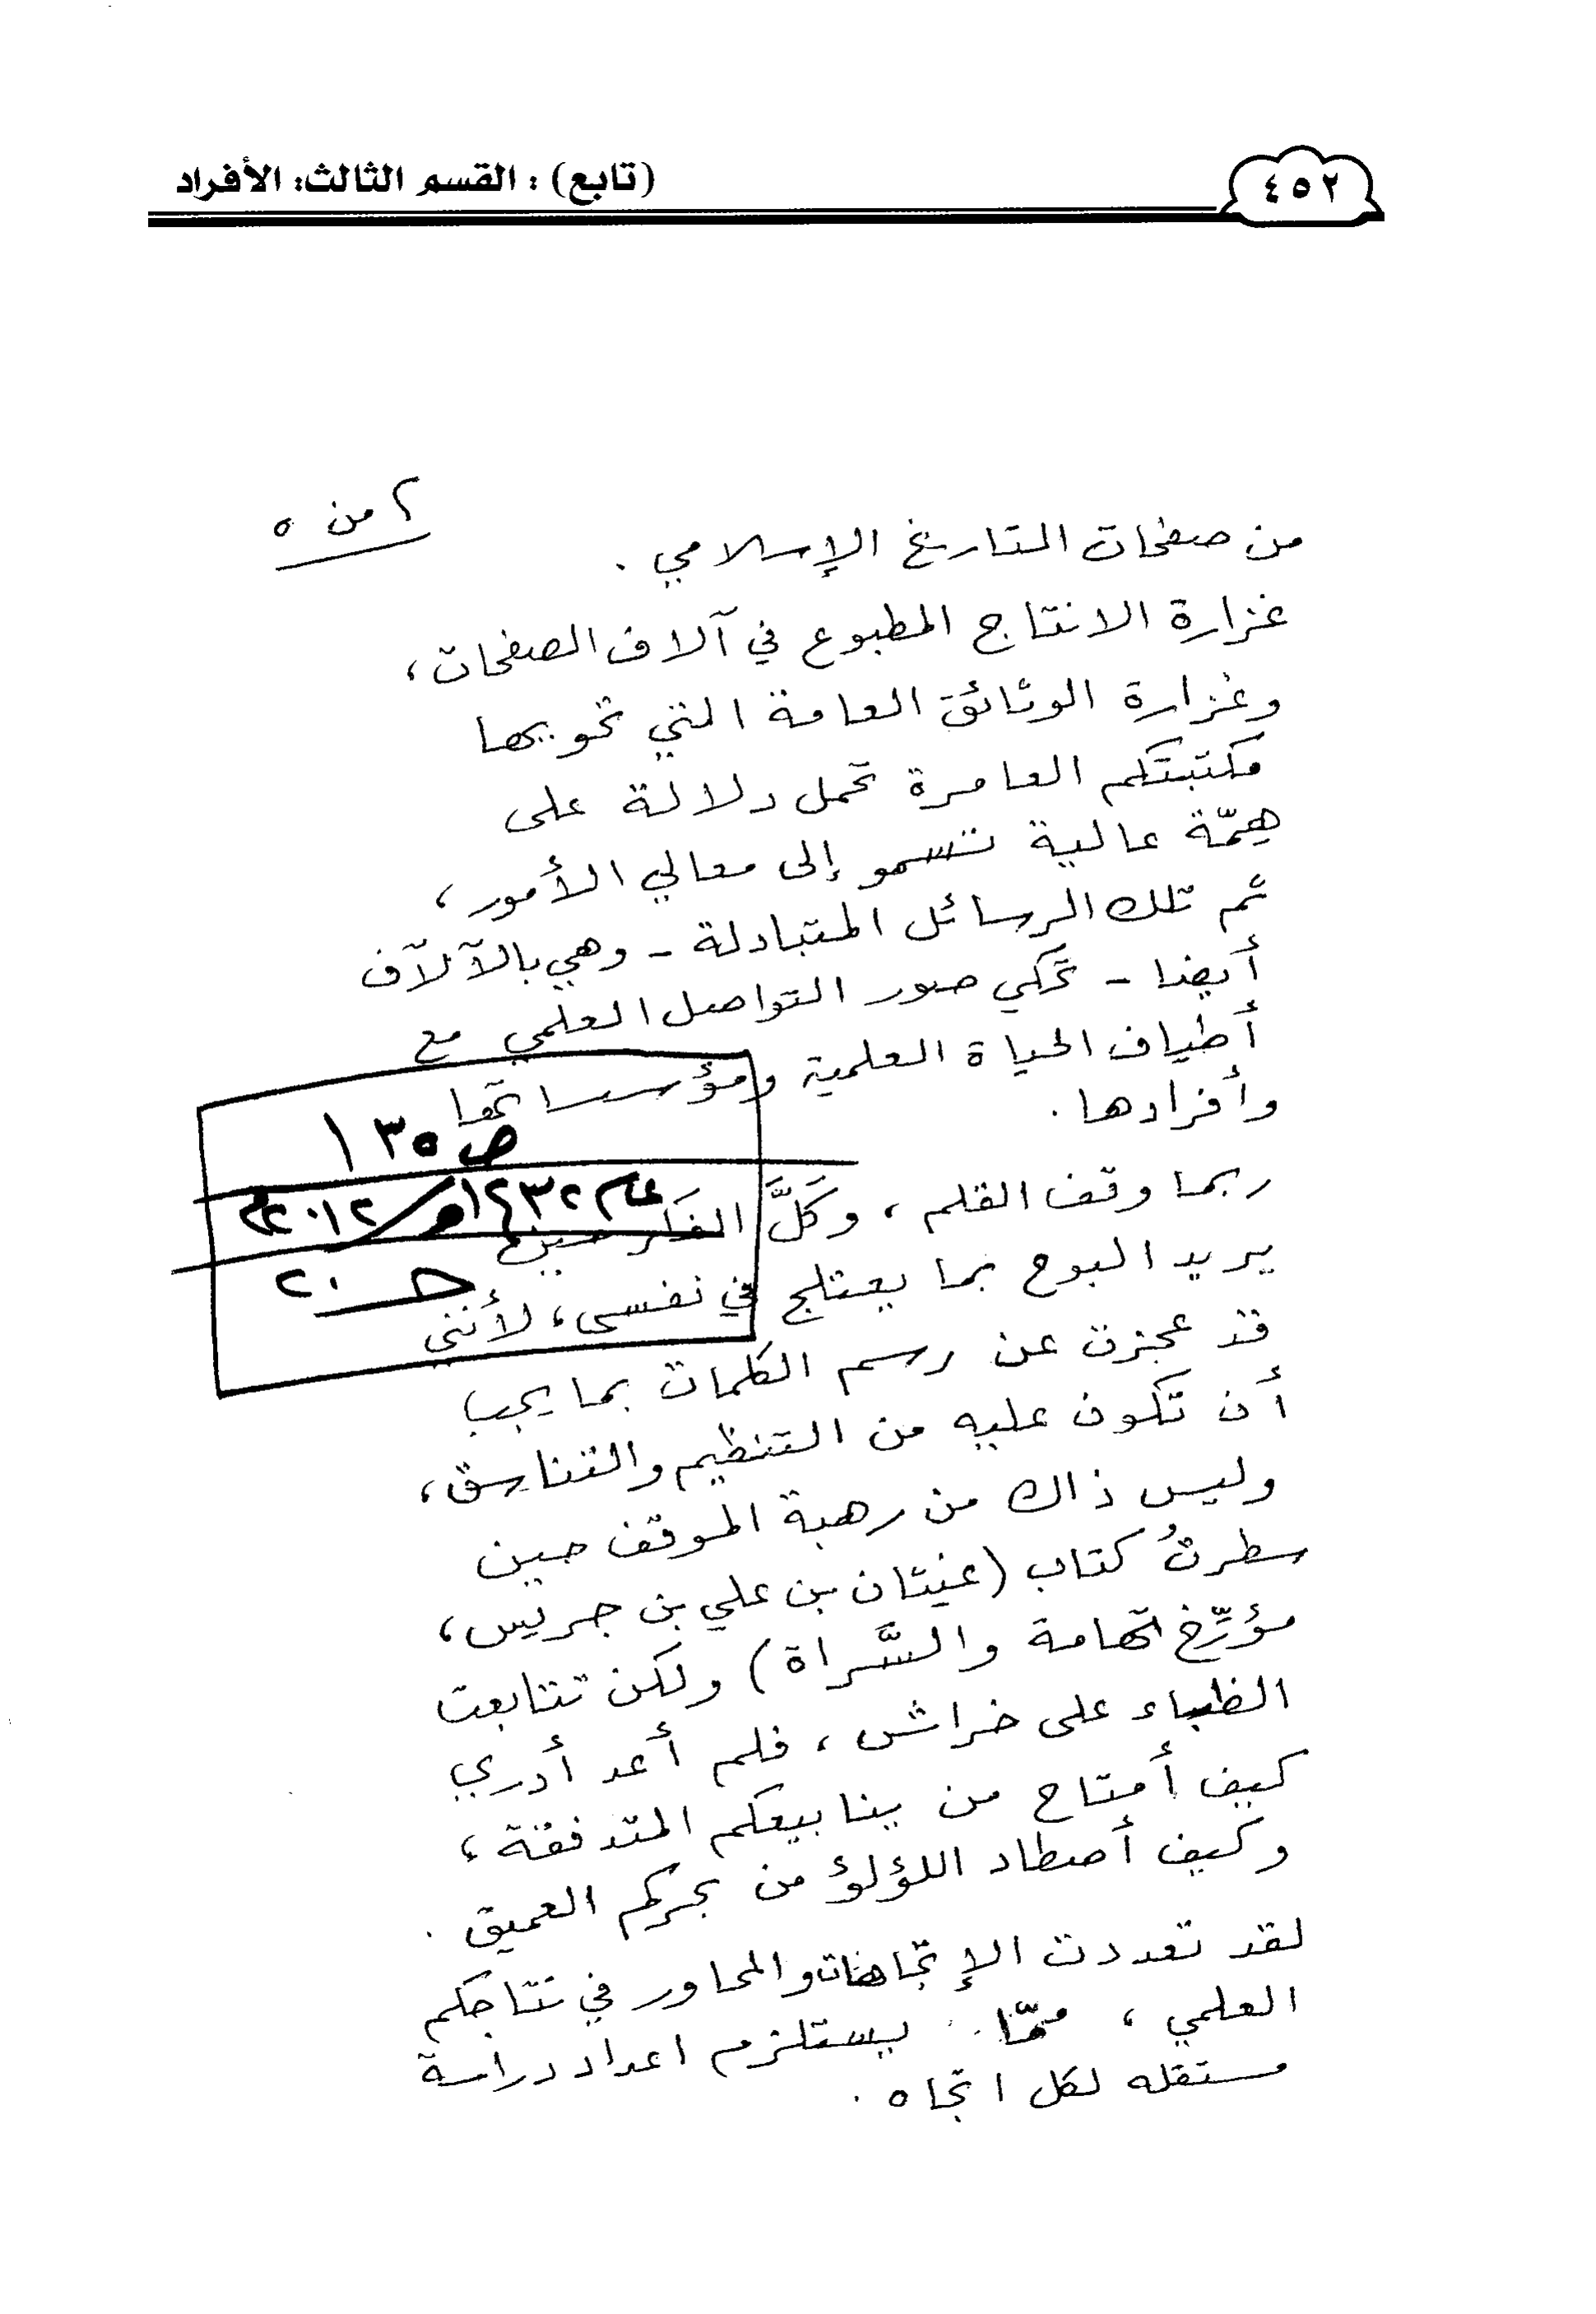 ٤٥٢
(تابع) : القسم الثالث: الأفراد
٢ من ٥
من صفحات التاريخ الإسلامي .
غزارة الانتاج المطبوع في آلاف الصفحات ،
وغزارة الوثائق العامة التي تحويها
مكتبتكم العامرة تحمل دلالة على
هِمّة عالية تسمو إلى معالي الأمور ،
ثم تلك الرسائل المتبادلة - وهي بالآلآف
أيضا - تحكي صور التواصل العلمي مع
أطياف الحياة العلمية ومؤسساتها
وأفرادها .
ص ١٣٥
عام ١٤٣٢هـ/٢٠١٢م
حـ ٢٠
ربما وقف القلم ، وَكَلَّ الفكر حين
يريد البوح بما يعتلج في نفسي ، لأنني
قد عجزت عن رسم الكلمات بما يجب
أن تكون عليه من التنظيم والتناسق ،
وليس ذاك من رهبة الموقف حين
سطرتُ كتاب (غيثان بن علي بن جريس ،
مؤرِّخ تهامة والسَّراة) ولكن تتابعت
الظباء على خراش ، فلم أعد أدري
كيف أمتاح من ينابيعكم المتدفقة ،
وكيف أصطاد اللؤلؤ من بحركم العميق .
لقد تعددت الإتجاهات والمحاور في نتاجكم
العلمي ، ممّا يستلزم اعداد دراسة
مستقله لكل اتجاه .